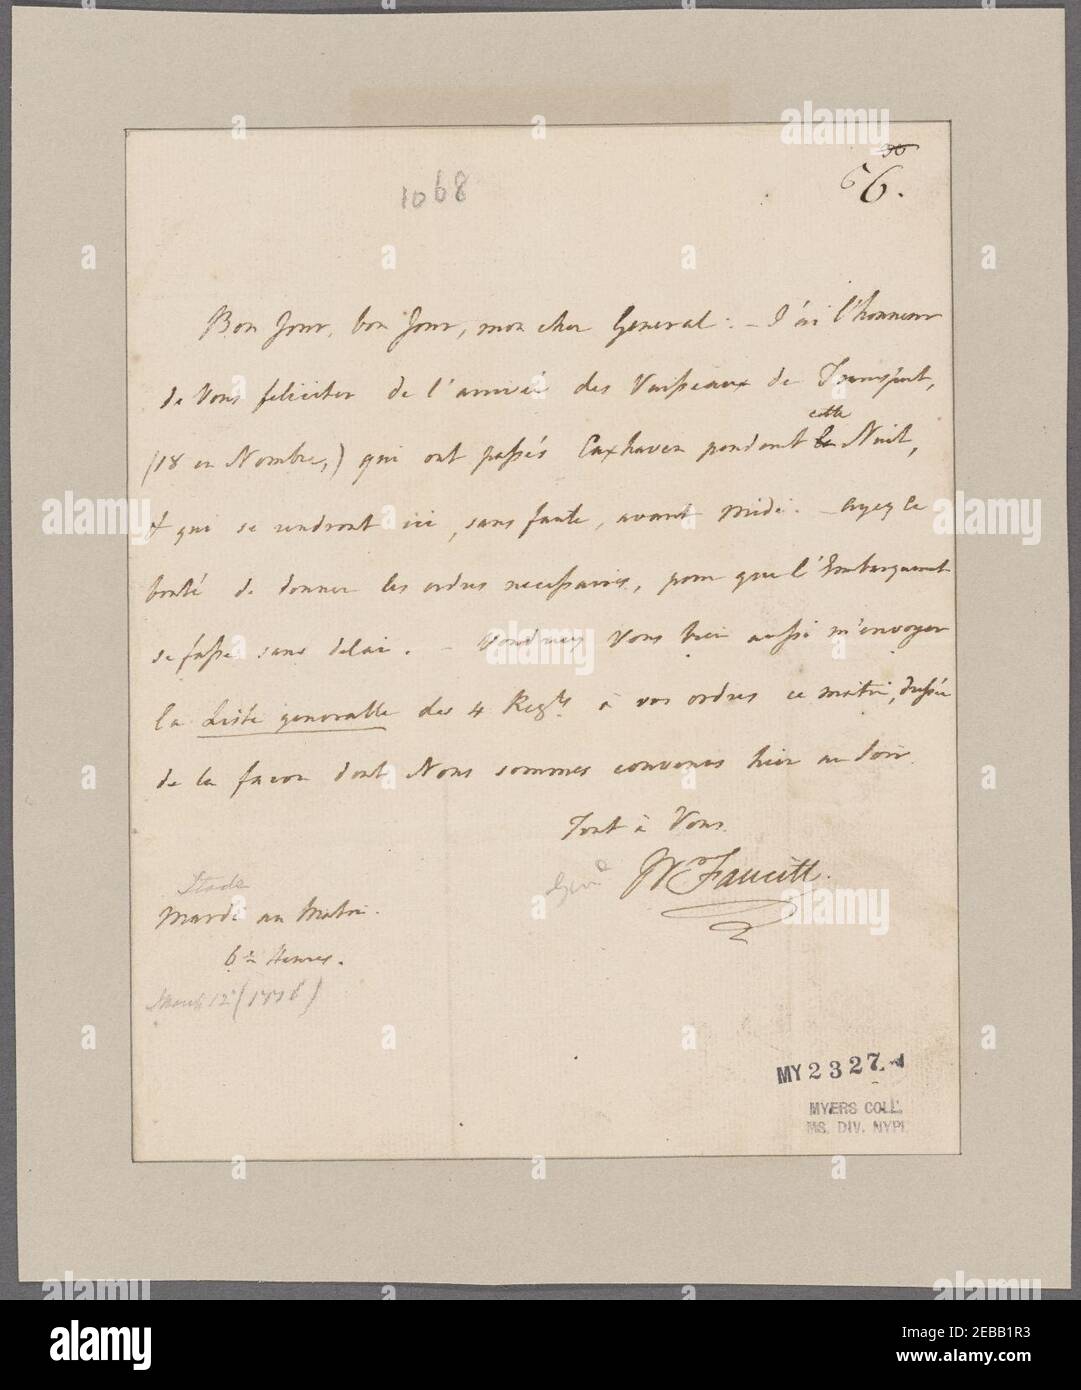 1068
30
66.
Bon Jour, bon Jour, mon cher General: – J'ai l'honneur
de Vous feliciter de l'arrivée des Vaisseaux de Transport,
(18 en Nombre,) qui ont passés Cuxhaven pendant la cette Nuit,
& qui se rendront ici, sans faute, avant midi. – Ayez la
bonté de donner les ordres necessaires, pour que l'Embarquement
se fasse sans delai. – Voudriez Vous bien aussi m'envoyer
la Liste generalle des 4 Regts. à vos ordres ce matin, dressée
de la facon dont Nous sommes convenus hier au Soir.
Tout à Vous.
Wm Faucitt.
Stade
Mardi au Matin.
6 Heures.
March 12 (1776)
MY 2327.
MYERS COLL.
MS. DIV. NYPL
alamy
Image ID: 2EBB1R3
www.alamy.com